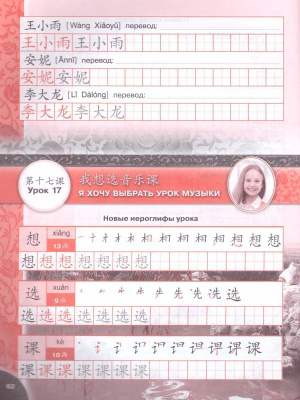 王小雨 [Wáng Xiǎoyǔ] перевод:
王小雨王小雨
安妮 [Ānnī] перевод:
安妮安妮安妮
李大龙 [Lǐ Dàlóng] перевод:
李大龙李大龙
第十七课
Урок 17
我想选音乐课
Я ХОЧУ ВЫБРАТЬ УРОК МУЗЫКИ
Новые иероглифы урока
想 xiǎng 13
想想想想想想想
选 xuǎn 9
选选选选选选选
课 kè 10
课课课课课课课
62